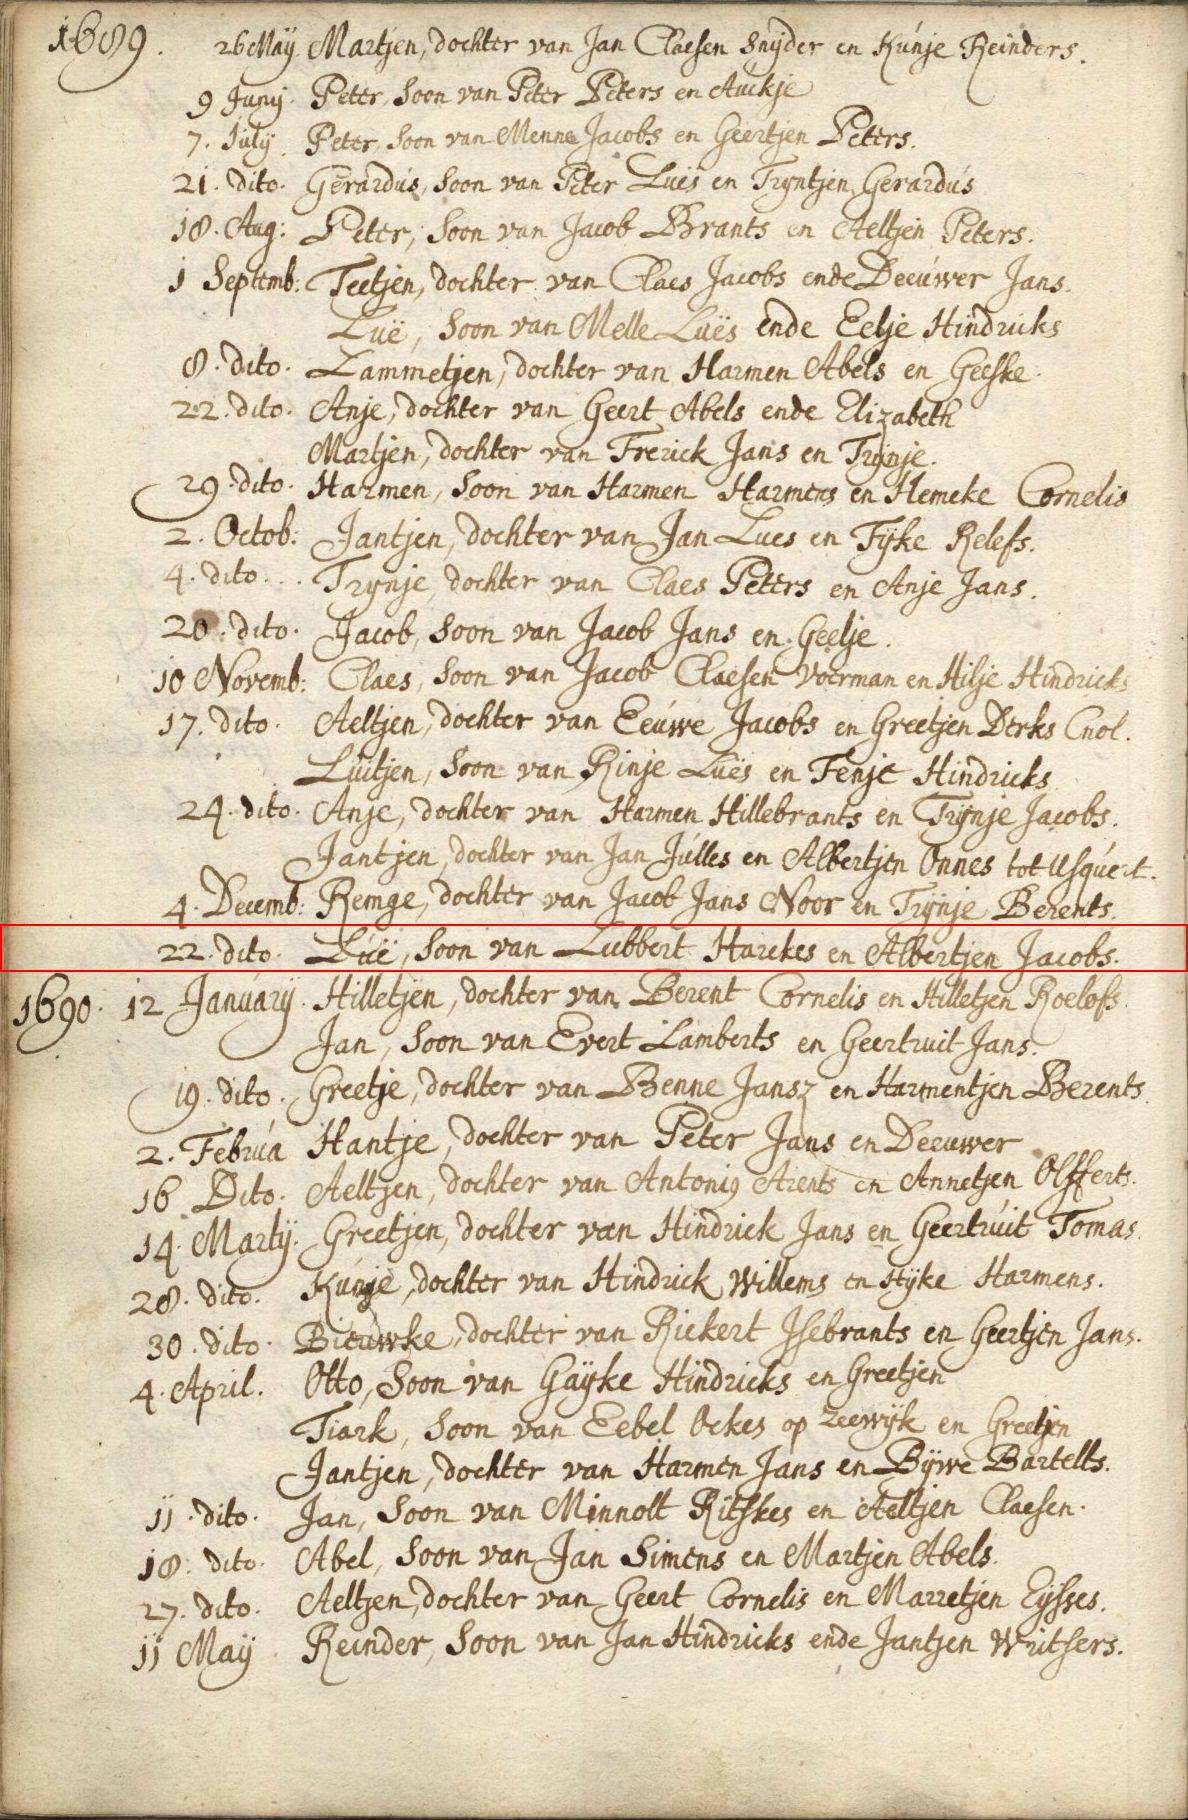 1689. 26 Maÿ. Martjen, dochter van Jan Claesen Snÿder en Kúnje Reinders.
9 Junÿ. Peter, Soon van Peter Peters en Auckje
7. Julÿ. Peter, Soon van Menne Jacobs en Geertjen Peters.
21. dito. Gerardús, Soon van Peter Luës en Trÿntjen Gerardús
18. Aug: Peter, Soon van Jacob Brants en Aeltjen Peters.
1 Septemb: Teetjen, dochter van Claes Jacobs ende Deeúwer Jans.
Luë, Soon van Melle Luës ende Eelje Hindricks
8. dito. Lammetjen, dochter van Harmen Abels en Geeske.
22. dito. Anje, dochter van Geert Abels ende Elizabeth
Martjen, dochter van Frerick Jans en Trÿnje.
29. dito. Harmen, Soon van Harmen Harmens en Hemeke Cornelis
2. Octob: Jantjen, dochter van Jan Lues en Tÿke Relefs.
4. dito... Trÿnje, dochter van Claes Peters en Anje Jans.
20. dito. Jacob, Soon van Jacob Jans en Geelje.
10 Novemb: Claes, Soon van Jacob Claesen Voerman en Hilje Hindricks
17. dito. Aeltjen, dochter van Eeúwe Jacobs en Greetjen Derks Cnol.
Luitjen, Soon van Rinje Luës en Fenje Hindricks
24. dito. Anje, dochter van Harmen Hillebrants en Trÿnje Jacobs.
Jantjen, dochter van Jan Júlles en Albertjen Onnes tot Usquert.
4. Decemb: Remge, dochter van Jacob Jans Noor en Trÿnje Berents.
22. dito. Luë, Soon van Lubbert Harckes en Albertjen Jacobs.
1690. 12 Januarÿ. Hilletjen, dochter van Berent Cornelis en Hilletjen Roelofs.
Jan, Soon van Evert Lamberts en Geertruit Jans.
19. dito. Greetje, dochter van Benne Jansz en Harmentjen Berents.
2. Febrúa Hantje, dochter van Peter Jans en Deeuwer
16 Dito. Aeltjen, dochter van Antonius Arents en Annetjen Olfferts.
14. Martÿ. Greetjen, dochter van Hindrick Jans en Geertrúit Tomas.
28. dito. Kúnje, dochter van Hindrick Willems en Hÿke Harmens.
30. dito. Bieuwke, dochter van Rickert Jsebrants en Geertjen Jans.
4. April. Otto, Soon van Gaÿke Hindricks en Greetjen
Tiark, Soon van Eebel Ockes op Zeewÿk en Greetjen
Jantjen, dochter van Harmen Jans en Bÿwe Bartelts.
11. dito. Jan, Soon van Minnolt Ritskes en Aeltjen Claesen.
18. dito. Abel, Soon van Jan Simens en Martjen Abels.
27. dito. Aeltjen, dochter van Geert Cornelis en Marretjen Eÿsses.
11 Maÿ Reinder, Soon van Jan Hindricks ende Jantjen Writsers.